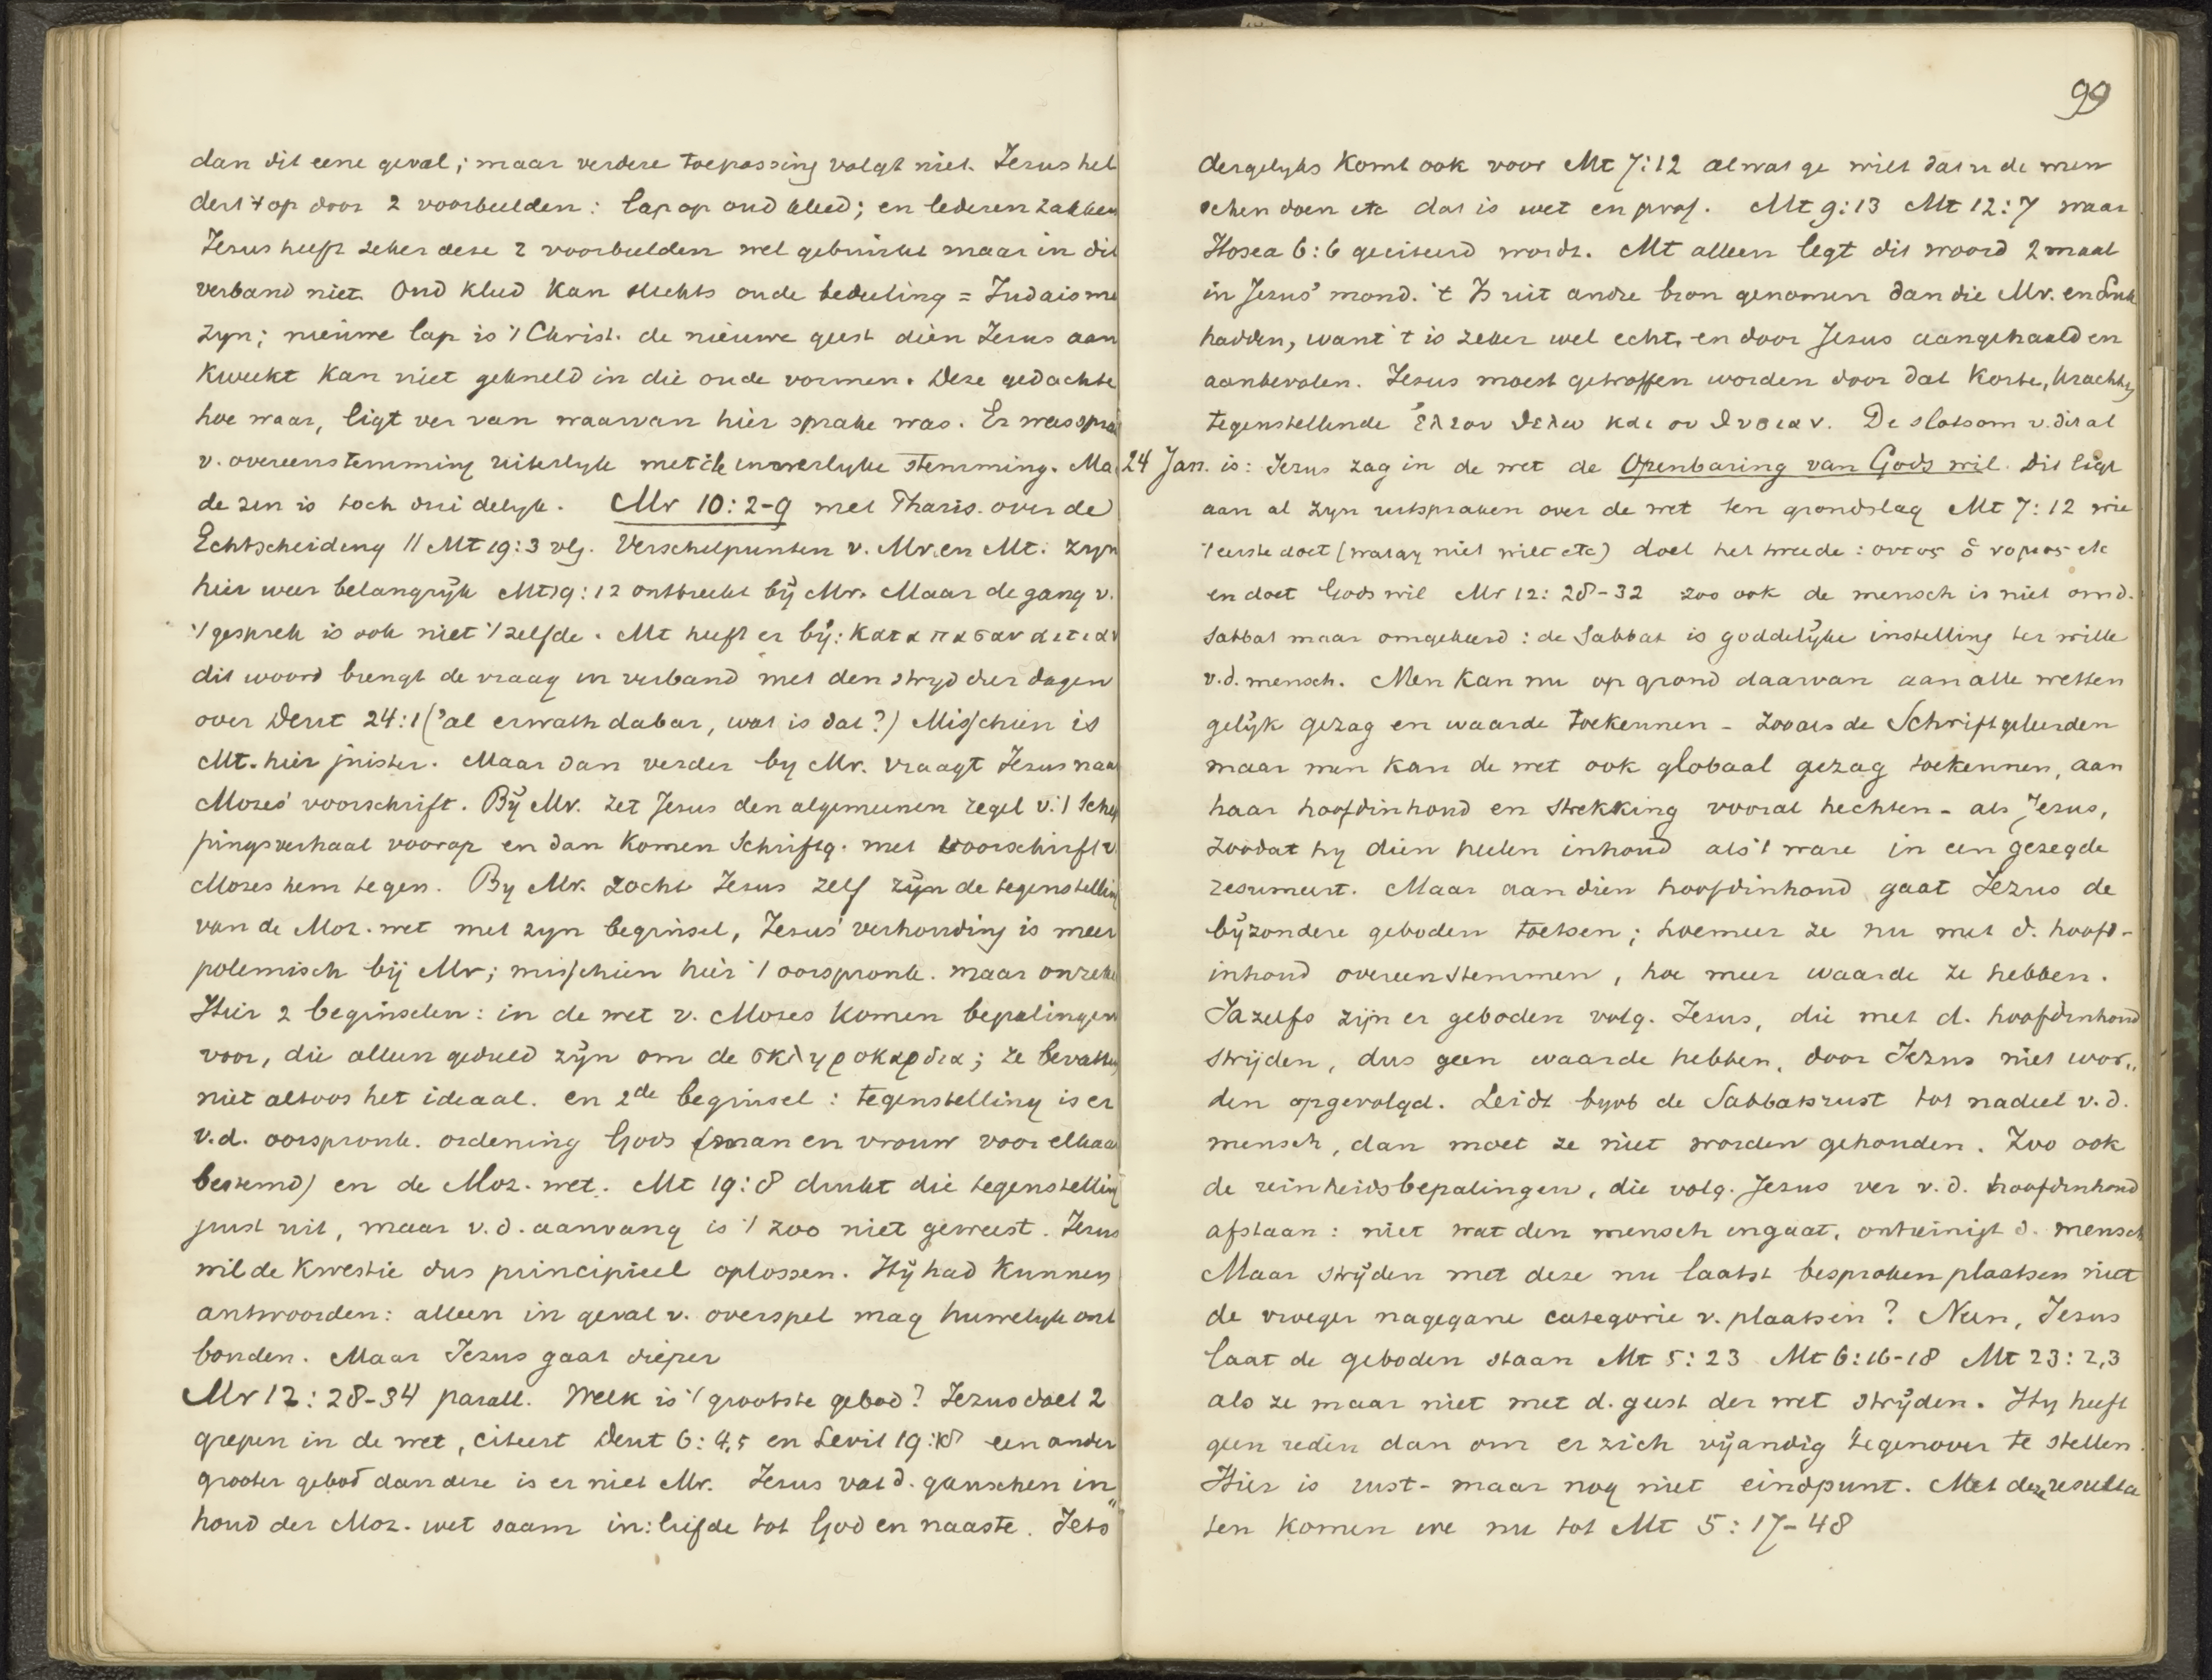 dan dit eene geval; maar verdere toepassing volgt niet. Jezus hel
dert 't op door 2 voorbeelden: lap op oud kleed; en lederen zakken
Jezus heeft zeker deze 2 voorbeelden wel gebruikt maar in dit
verband niet. Oud kleed kan slechts oude bedeeling = Judaisme
zyn; nieuwe lap is 't Christ. de nieuwe geest dien Jezus aan
kweekt kan niet gekneld in die oude vormen. Deze gedachte
hoe waar, ligt ver van waarvan hier sprake was. Er was spra
v. overeenstemming uiterlyke met de innerlyke stemming. Ma
de zin is toch duidelyk. Mr 10:2-9 met Pharis. over de
Echtscheiding // Mt 19:3 vlg. Verschilpunten v. Mr. en Mt. zyn
hier weer belangrijk Mt 19:12 ontbreekt bij Mr. Maar de gang v.
't gesprek is ook niet 't zelfde. Mt heeft er bij: κατα πασαν αιτιαν
dit woord brengt de vraag in verband met den stryd dier dagen
over Deut 24:1 ('al erwath dabar, wat is dat?) Misschien is
Mt. hier juister. Maar dan verder by Mr. vraagt Jezus naar
Mozes' voorschrift. Bij Mt. zet Jezus den algemeenen regel v. 't Schep
pingsverhaal voorop en dan komen Schriftg. met voorschrift v.
Mozes hem tegen. By Mr. zocht Jezus zelf zijn de tegenstelling
van de Moz. wet met zyn beginsel, Jezus' verhouding is meer
polemisch bij Mr; misschien hier 't oorspronk. maar onzeker
Hier 2 beginselen: in de wet v. Mozes komen bepalingen
voor, die alleen geduld zijn om de σκληροκαρδια; ze bevatten
niet altoos het ideaal. en 2de beginsel: tegenstelling is er
v.d. oorspronk. ordening Gods (man en vrouw voor elkaar
bestemd) en de Moz. wet. Mt 19:8 drukt die tegenstelling
juist uit, maar v.d. aanvang is 't zoo niet geweest. Jezus
wil de kwestie dus principieel oplossen. Hij had kunnen
antwoorden: alleen in geval v. overspel mag huwelyk ont
bonden. Maar Jezus gaat dieper
Mr 12:28-34 parall. Welk is 't grootste gebod? Jezus doet 2
grepen in de wet, citeert Deut 6:4,5 en Levit 19:18 een ander
grooter gebod dan deze is er niet Mr. Jezus vat d. ganschen in
houd der Moz. wet saam in: liefde tot God en naaste. Iets
99
dergelyks komt ook voor Mt 7:12 al wat ge wilt dat u de men
schen doen etc dat is wet en prof. Mt 9:13 Mt 12:7 waar
Hosea 6:6 geciteerd wordt. Mt alleen legt dit woord 2 maal
in Jezus' mond. 't Is uit andre bron genomen dan die Mr. en Luk
hadden, want 't is zeker wel echt, en door Jezus aangehaald en
aanbevolen. Jezus moest getroffen worden door dat korte, krachtig
tegenstellende ἐλεον θελω και ου θυσιαν. De slotsom v. dit al
24 Jan. is: Jezus zag in de wet de Openbaring van Gods wil. Dit ligt
aan al zyn uitspraken over de wet ten grondslag Mt 7:12 wie
't eerste doet (wat gy niet wilt etc) doet het tweede: ουτος ὁ νομος etc
en doet Gods wil Mr 12:28-32 zoo ook de mensch is niet om d.
Sabbat maar omgekeerd: de Sabbat is goddelijke instelling ter wille
v.d. mensch. Men kan nu op grond daarvan aan alle wetten
gelijk gezag en waarde toekennen - zooals de Schriftgeleerden
maar men kan de wet ook globaal gezag toekennen, aan
haar hoofdinhoud en strekking vooral hechten - als Jezus,
zoodat hy dien heelen inhoud als 't ware in een gezegde
resumeert. Maar aan dien hoofdinhoud gaat Jezus de
bijzondere geboden toetsen; hoe meer ze nu met d. hoofd-
inhoud overeenstemmen, hoe meer waarde ze hebben.
Ja zelfs zijn er geboden volg. Jezus, die met d. hoofdinhoud
strijden, dus geen waarde hebben, door Jezus niet wor„
den opgevolgd. Leidt byvb de Sabbatsrust tot nadeel v.d.
mensch, dan moet ze niet worden gehouden. Zoo ook
de reinheidsbepalingen, die volg. Jezus ver v.d. hoofdinhoud
afstaan: niet wat den mensch ingaat, ontreinigt d. mensch
Maar strijden met deze nu laatst besproken plaatsen niet
de vroeger nagegane categorie v. plaatsen? Neen, Jezus
laat de geboden staan Mt 5:23 Mt 6:16-18 Mt 23:2,3
als ze maar niet met d. geest der wet strijden. Hy heeft
geen reden dan om er zich vijandig tegenover te stellen.
Hier is rust - maar nog niet eindpunt. Met deze resulta
ten komen we nu tot Mt 5:17-48